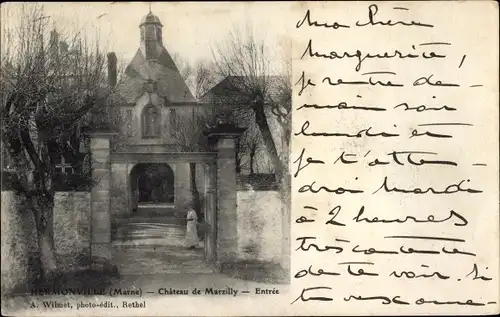 Ma chère
Marguerite,
je rentre de-
main soir
lundi et
je t'atten-
drai mardi
à 2 heures
très contente
de te voir. Si
HERMONVILLE (Marne) — Château de Marzilly — Entrée
A. Wilmet, photo-édit., Rethel